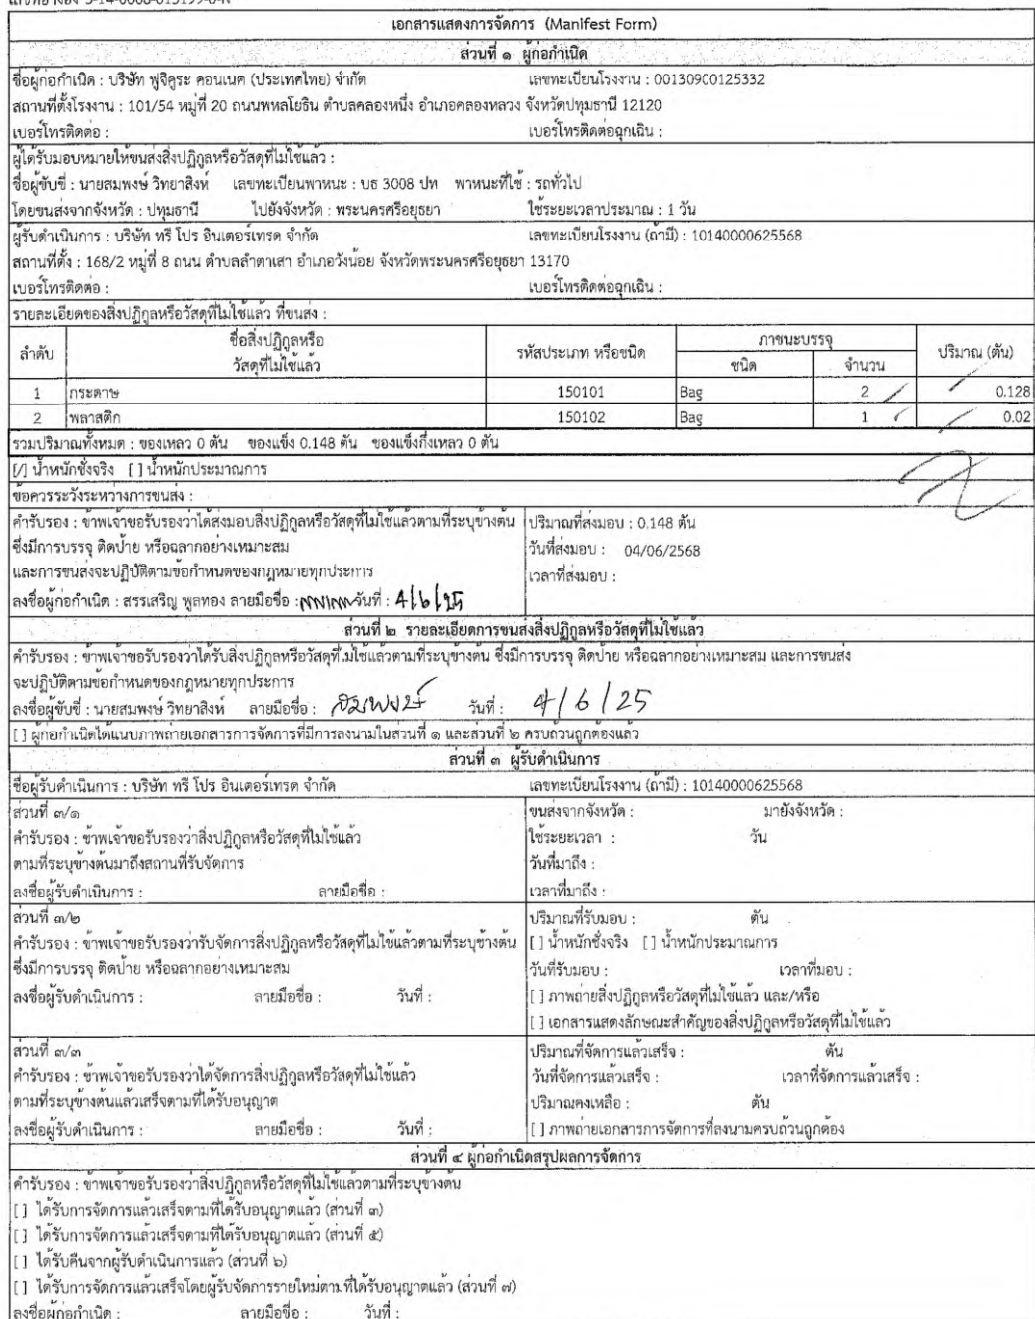 เอกสารแสดงการจัดการ (Manifest Form)
ส่วนที่ ๑ ผู้ก่อกำเนิด
ชื่อผู้ก่อกำเนิด : บริษัท ฟูจิคูระ คอนเนค (ประเทศไทย) จำกัด เลขทะเบียนโรงงาน : 00130900125332
สถานที่ตั้งโรงงาน : 101/54 หมู่ที่ 20 ถนนพหลโยธิน ตำบลคลองหนึ่ง อำเภอคลองหลวง จังหวัดปทุมธานี 12120
เบอร์โทรติดต่อ : เบอร์โทรติดต่อฉุกเฉิน :
ผู้ได้รับมอบหมายให้ขนส่งสิ่งปฏิกูลหรือวัสดุที่ไม่ใช้แล้ว :
ชื่อผู้ขับขี่ : นายสมพงษ์ วิทยาสิงห์ เลขทะเบียนพาหนะ : บธ 3008 ปท พาหนะที่ใช้ : รถทั่วไป
โดยขนส่งจากจังหวัด : ปทุมธานี ไปยังจังหวัด : พระนครศรีอยุธยา ใช้ระยะเวลาประมาณ : 1 วัน
ผู้รับดำเนินการ : บริษัท ทรี โปร อินเตอร์เทรด จำกัด เลขทะเบียนโรงงาน (ถ้ามี) : 10140000625568
สถานที่ตั้ง : 168/2 หมู่ที่ 8 ถนน ตำบลลำตาเสา อำเภอวังน้อย จังหวัดพระนครศรีอยุธยา 13170
เบอร์โทรติดต่อ : เบอร์โทรติดต่อฉุกเฉิน :
รายละเอียดของสิ่งปฏิกูลหรือวัสดุที่ไม่ใช้แล้ว ที่ขนส่ง :
ลำดับ ชื่อสิ่งปฏิกูลหรือ วัสดุที่ไม่ใช้แล้ว รหัสประเภท หรือชนิด ภาชนะบรรจุ ปริมาณ (ตัน)
ชนิด จำนวน
1 กระดาษ 150101 Bag 2 0.128
2 พลาสติก 150102 Bag 1 0.02
รวมปริมาณทั้งหมด : ของเหลว 0 ตัน ของแข็ง 0.148 ตัน ของแข็งกึ่งเหลว 0 ตัน
[/] น้ำหนักชั่งจริง [ ] น้ำหนักประมาณการ
ข้อควรระวังระหว่างการขนส่ง :
คำรับรอง : ข้าพเจ้าขอรับรองว่าได้ส่งมอบสิ่งปฏิกูลหรือวัสดุที่ไม่ใช้แล้วตามที่ระบุข้างต้น ปริมาณที่ส่งมอบ : 0.148 ตัน
ซึ่งมีการบรรจุ ติดป้าย หรือฉลากอย่างเหมาะสม วันที่ส่งมอบ : 04/06/2568
และการขนส่งจะปฏิบัติตามข้อกำหนดของกฎหมายทุกประการ เวลาที่ส่งมอบ :
ลงชื่อผู้ก่อกำเนิด : สรรเสริญ พูลทอง ลายมือชื่อ : วันที่ : 4/6/25
ส่วนที่ ๒ รายละเอียดการขนส่งสิ่งปฏิกูลหรือวัสดุที่ไม่ใช้แล้ว
คำรับรอง : ข้าพเจ้าขอรับรองว่าได้รับสิ่งปฏิกูลหรือวัสดุที่ไม่ใช้แล้วตามที่ระบุข้างต้น ซึ่งมีการบรรจุ ติดป้าย หรือฉลากอย่างเหมาะสม และการขนส่ง
จะปฏิบัติตามข้อกำหนดของกฎหมายทุกประการ
ลงชื่อผู้ขับขี่ : นายสมพงษ์ วิทยาสิงห์ ลายมือชื่อ : สมพงษ์ วันที่ : 4/6/25
[ ] ผู้ก่อกำเนิดได้แนบภาพถ่ายเอกสารการจัดการที่มีการลงนามในส่วนที่ ๑ และส่วนที่ ๒ ครบถ้วนถูกต้องแล้ว
ส่วนที่ ๓ ผู้รับดำเนินการ
ชื่อผู้รับดำเนินการ : บริษัท ทรี โปร อินเตอร์เทรด จำกัด เลขทะเบียนโรงงาน (ถ้ามี) : 10140000625568
ส่วนที่ ๓/๑ ขนส่งจากจังหวัด : มายังจังหวัด :
คำรับรอง : ข้าพเจ้าขอรับรองว่าสิ่งปฏิกูลหรือวัสดุที่ไม่ใช้แล้ว ใช้ระยะเวลา : วัน
ตามที่ระบุข้างต้นมาถึงสถานที่รับจัดการ วันที่มาถึง :
ลงชื่อผู้รับดำเนินการ : ลายมือชื่อ : เวลาที่มาถึง :
ส่วนที่ ๓/๒ ปริมาณที่รับมอบ : ตัน
คำรับรอง : ข้าพเจ้าขอรับรองว่ารับจัดการสิ่งปฏิกูลหรือวัสดุที่ไม่ใช้แล้วตามที่ระบุข้างต้น [ ] น้ำหนักชั่งจริง [ ] น้ำหนักประมาณการ
ซึ่งมีการบรรจุ ติดป้าย หรือฉลากอย่างเหมาะสม วันที่รับมอบ : เวลาที่มอบ :
ลงชื่อผู้รับดำเนินการ : ลายมือชื่อ : วันที่ : [ ] ภาพถ่ายสิ่งปฏิกูลหรือวัสดุที่ไม่ใช้แล้ว และ/หรือ
[ ] เอกสารแสดงลักษณะสำคัญของสิ่งปฏิกูลหรือวัสดุที่ไม่ใช้แล้ว
ส่วนที่ ๓/๓ ปริมาณที่จัดการแล้วเสร็จ : ตัน
คำรับรอง : ข้าพเจ้าขอรับรองว่าได้จัดการสิ่งปฏิกูลหรือวัสดุที่ไม่ใช้แล้ว วันที่จัดการแล้วเสร็จ : เวลาที่จัดการแล้วเสร็จ :
ตามที่ระบุข้างต้นแล้วเสร็จตามที่ได้รับอนุญาต ปริมาณคงเหลือ : ตัน
ลงชื่อผู้รับดำเนินการ : ลายมือชื่อ : วันที่ : [ ] ภาพถ่ายเอกสารการจัดการที่ลงนามครบถ้วนถูกต้อง
ส่วนที่ ๔ ผู้ก่อกำเนิดสรุปผลการจัดการ
คำรับรอง : ข้าพเจ้าขอรับรองว่าสิ่งปฏิกูลหรือวัสดุที่ไม่ใช้แล้วตามที่ระบุข้างต้น
[ ] ได้รับการจัดการแล้วเสร็จตามที่ได้รับอนุญาตแล้ว (ส่วนที่ ๓)
[ ] ได้รับการจัดการแล้วเสร็จตามที่ได้รับอนุญาตแล้ว (ส่วนที่ ๕)
[ ] ได้รับคืนจากผู้รับดำเนินการแล้ว (ส่วนที่ ๖)
[ ] ได้รับการจัดการแล้วเสร็จโดยผู้รับจัดการรายใหม่ตามที่ได้รับอนุญาตแล้ว (ส่วนที่ ๗)
ลงชื่อผู้ก่อกำเนิด : ลายมือชื่อ : วันที่ :